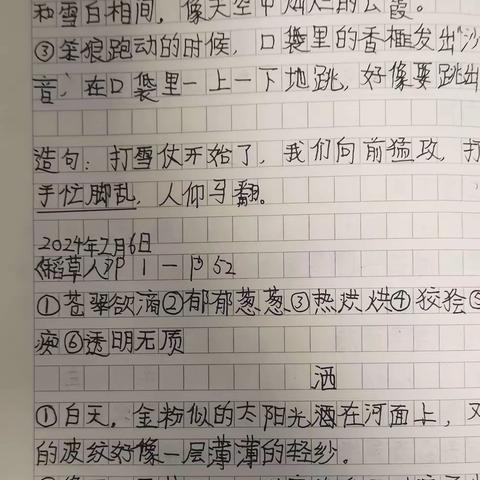 和雪白相间，像天空中灿烂的云霞。
③笨狼跑动的时候，口袋里的香榧发出"沙
音，在口袋里一上一下地跳，好像要跳出
造句：打雪仗开始了，我们向前猛攻，打
手忙脚乱，人仰马翻。
2024年2月6日
《稻草人》P1—P52
①苍翠欲滴②郁郁葱葱③热烘烘④狡狯⑤
痴⑥透明无质
洒
①白天，金粉似的太阳光洒在河面上，又
的波纹好像一层薄薄的轻纱。